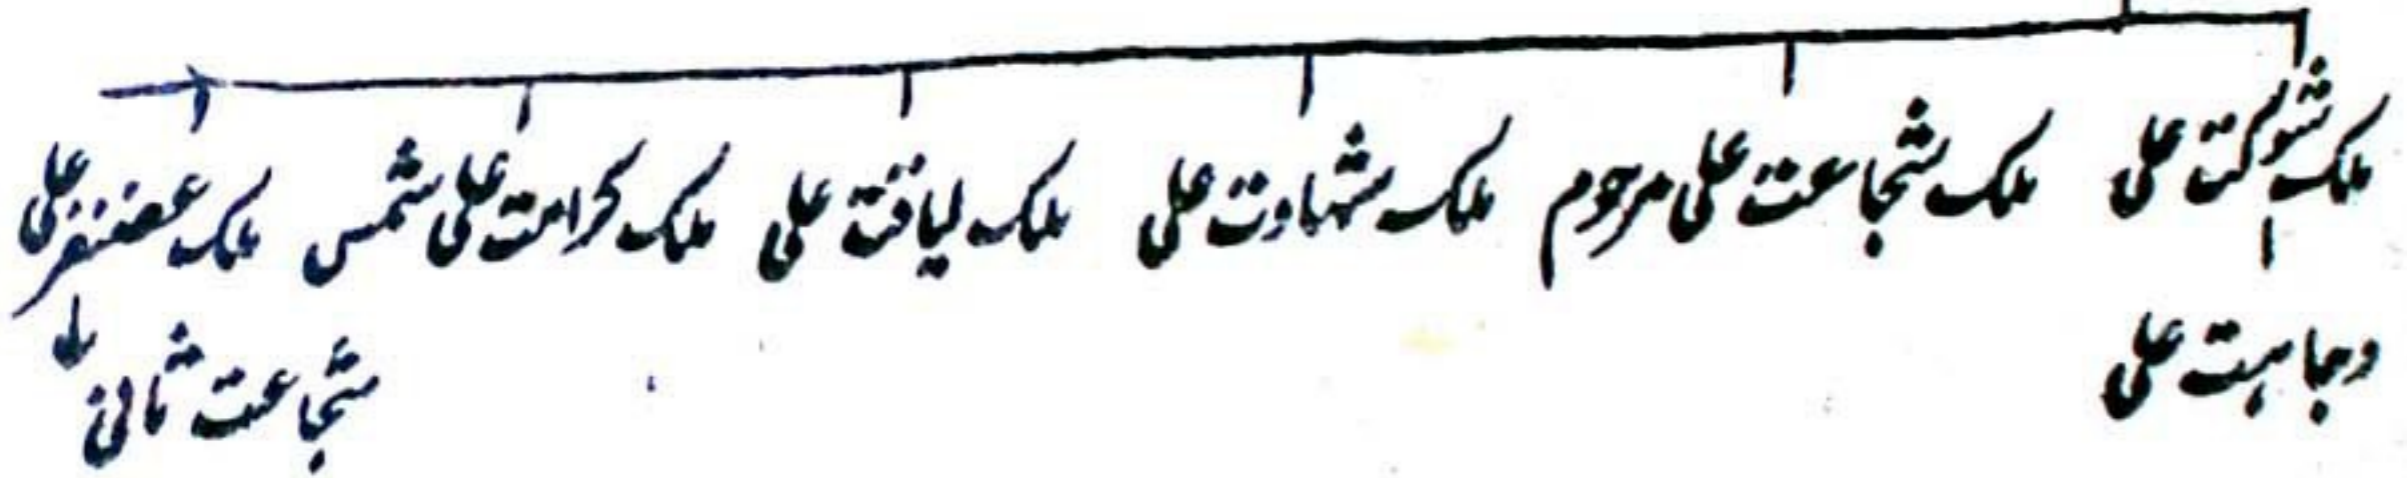 ملک شوکت علی ملک شجاعت علی مرحوم ملک شہادت علی ملک لیاقت علی ملک کرامت علی شمس ملک غضنفر علی
وجاہت علی شجاعت ثانی